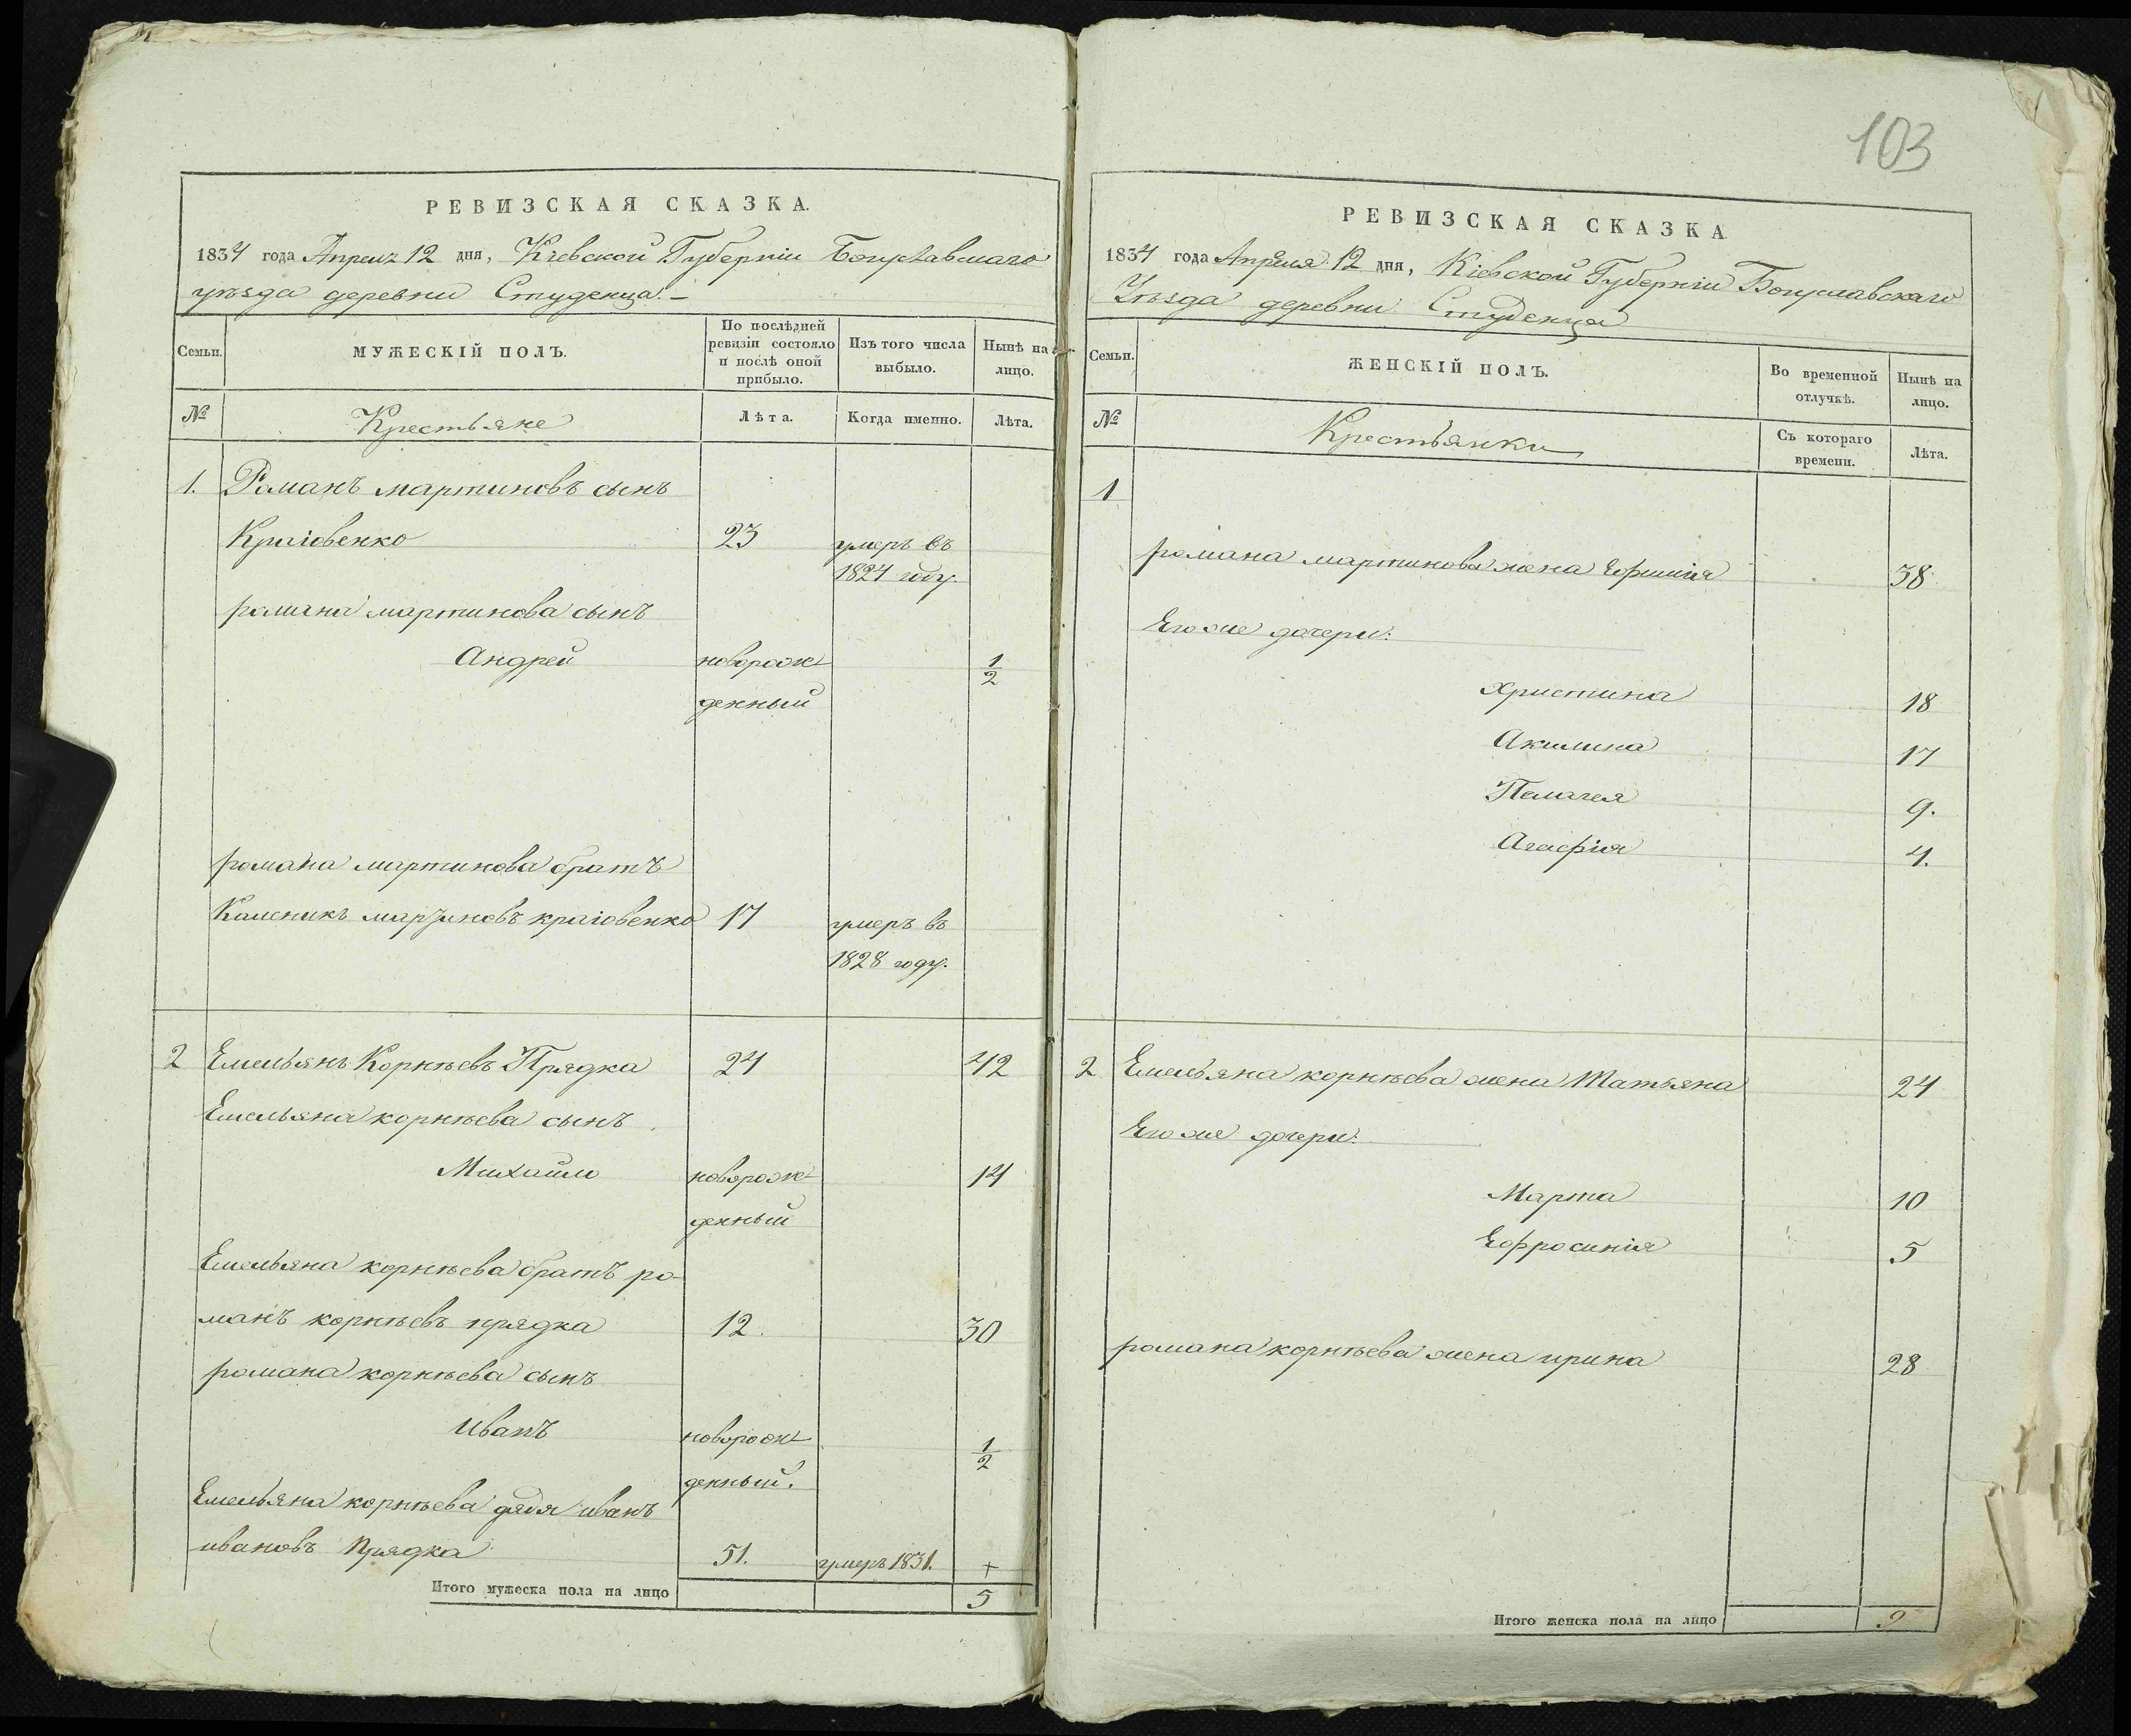 103
РЕВИЗСКАЯ СКАЗКА.
1834 года Апреля 12 дня, Киевской Губерніи Богуславскаго
уѣзда деревни Студенца.
Семьи.
МУЖЕСКІЙ ПОЛЪ.
По послѣдней ревизіи состояло и послѣ оной прибыло.
Изъ того числа выбыло.
Нынѣ на лицо.
№
Крестьяне
Лѣта.
Когда именно.
Лѣта.
1. Романъ мартиновъ сынъ
23 умеръ въ
1824 году.
романа мартинова сынъ
Андрей новорож- 1/2
денный
романа мартинова братъ
Каленикъ мартиновъ 17 умеръ въ
1828 году.
2 Емельянъ Корнѣевъ Прядка 24 42
Емельяна корнѣева сынъ
Михайло новорож- 14
денный
Емельяна корнѣева братъ ро-
манъ корнѣевъ прядка 12. 30
романа корнѣева сынъ
иванъ новорож- 1/2
денный.
Емельяна корнѣева дядя иванъ
ивановъ Прядка 51. умеръ 1831. +
Итого мужеска пола на лицо 5
РЕВИЗСКАЯ СКАЗКА
1834 года Апреля 12 дня, Кіевской Губерніи Богуславскаго
Уѣзда деревни Студенца
Семьи.
ЖЕНСКІЙ ПОЛЪ.
Во временной отлучкѣ.
Нынѣ на лицо.
№
Крестьянки
Съ котораго времени.
Лѣта.
1
романа мартинова жена 38
Его же дочери:
Христина 18
Акилина 17
Пелагея 9.
Агафія 4.
2 Емельяна корнѣева жена Татьяна 24
Его же дочери:
Марта 10
Ефросинія 5
романа корнѣева жена ирина 28
Итого женска пола на лицо 9